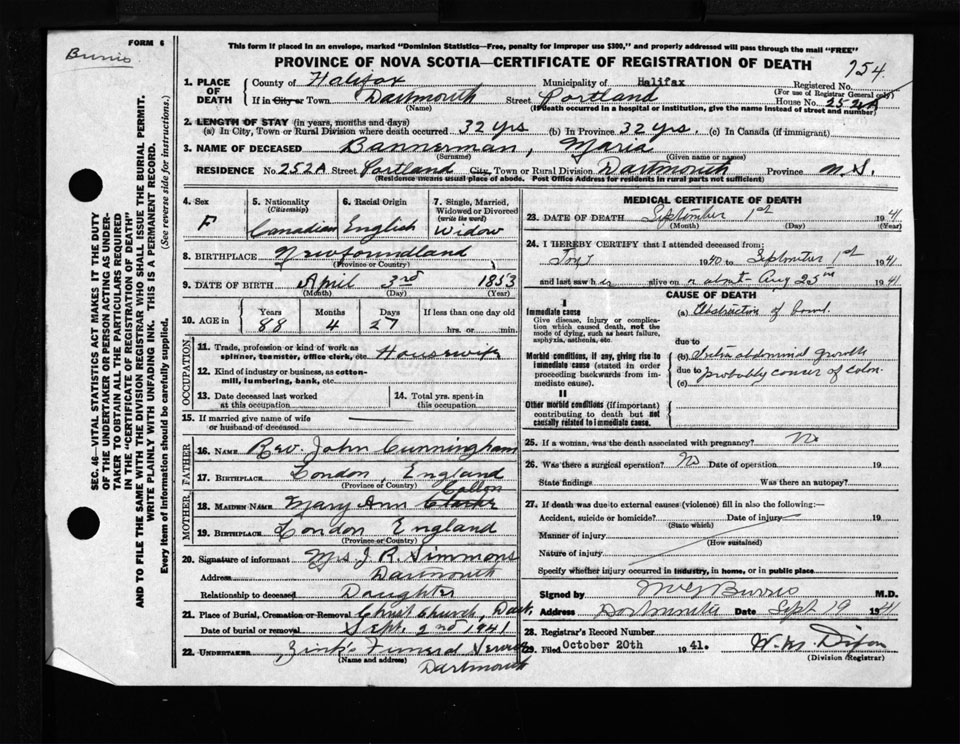 FORM 6
Burris
This form if placed in an envelope, marked "Dominion Statistics—Free, penalty for improper use $300," and properly addressed will pass through the mail "FREE"
PROVINCE OF NOVA SCOTIA—CERTIFICATE OF REGISTRATION OF DEATH
954
1. PLACE OF DEATH
County of Halifax Municipality of Halifax Registered No.
(For use of Registrar General only)
If in City or Town Dartmouth Street Portland House No. 252A
(Name) (If death occurred in a hospital or institution, give the name instead of street and number)
2. LENGTH OF STAY (in years, months and days)
(a) In City, Town or Rural Division where death occurred 32 yrs (b) In Province 32 yrs. (c) In Canada (if immigrant)
3. NAME OF DECEASED Bannerman, Maria
(Surname) (Given name or names)
RESIDENCE No. 252A Street Portland City, Town or Rural Division Dartmouth Province N.S.
(Residence means usual place of abode. Post Office Address for residents in rural parts not sufficient)
4. Sex
F
5. Nationality
(Citizenship)
Canadian
6. Racial Origin
English
7. Single, Married, Widowed or Divorced
(write the word)
Widow
8. BIRTHPLACE Newfoundland
(Province or Country)
9. DATE OF BIRTH April 3rd 1853
(Month) (Day) (Year)
10. AGE in Years Months Days If less than one day old
88 4 27 hrs. or min.
OCCUPATION
11. Trade, profession or kind of work as spinner, teamster, office clerk, etc. Housewife
12. Kind of industry or business, as cotton-mill, lumbering, bank, etc.
13. Date deceased last worked at this occupation
14. Total yrs. spent in this occupation
15. If married give name of wife or husband of deceased
FATHER
16. NAME Rev. John Cunningham
17. BIRTHPLACE London, England
(Province or Country)
MOTHER
18. MAIDEN NAME Mary Ann
19. BIRTHPLACE London England
(Province or Country)
20. Signature of informant Mrs J. R. Simmons
Address Darmouth
Relationship to deceased Daughter
21. Place of Burial, Cremation or Removal Christ Church, Dart.
Date of burial or removal Sept. 2nd 1941
22. UNDERTAKER Zink's Funeral Service
(Name and address) Dartmouth
MEDICAL CERTIFICATE OF DEATH
23. DATE OF DEATH September 1st 1941
(Month) (Day) (Year)
24. I HEREBY CERTIFY that I attended deceased from:
1940 to September 1st 1941
and last saw her alive on or about Aug 25th 1941
CAUSE OF DEATH
I
Immediate cause
Give disease, injury or complication which caused death, not the mode of dying, such as heart failure, asphyxia, asthenia, etc.
(a) Obstruction of bowel.
due to
Morbid conditions, if any, giving rise to immediate cause (stated in order proceeding backwards from immediate cause).
(b) Intra abdominal growth
due to probably cancer of colon.
(c)
II
Other morbid conditions (if important) contributing to death but not causally related to immediate cause.
25. If a woman, was the death associated with pregnancy? No
26. Was there a surgical operation? No Date of operation 19
State findings Was there an autopsy?
27. If death was due to external causes (violence) fill in also the following:
Accident, suicide or homicide? Date of injury 19
(State which)
Manner of injury
(How sustained)
Nature of injury
Specify whether injury occurred in industry, in home, or in public place
Signed by Burris M.D.
Address Dartmouth Date Sept 19 1941
28. Registrar's Record Number
29. Filed October 20th 1941. W. M. Dixon
(Division Registrar)
SEC. 46—VITAL STATISTICS ACT MAKES IT THE DUTY
OF THE UNDERTAKER OR PERSON ACTING AS UNDER-
TAKER TO OBTAIN ALL THE PARTICULARS REQUIRED
IN THE "CERTIFICATE OF REGISTRATION OF DEATH"
AND TO FILE THE SAME WITH THE DIVISION REGISTRAR WHO SHALL ISSUE THE BURIAL PERMIT.
WRITE PLAINLY WITH UNFADING INK. THIS IS A PERMANENT RECORD.
Every item of information should be carefully supplied. (See reverse side for instructions.)